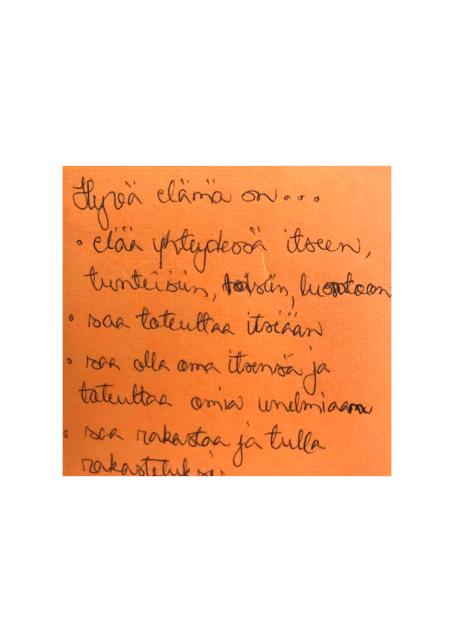 Hyvä elämä on...
• elää yhteydessä itseen,
tunteisiin, toisiin, luontoon
• saa toteuttaa itseään
• saa olla oma itsensä ja
toteuttaa omia unelmiaan
• saa rakastaa ja tulla
rakastetuksi.